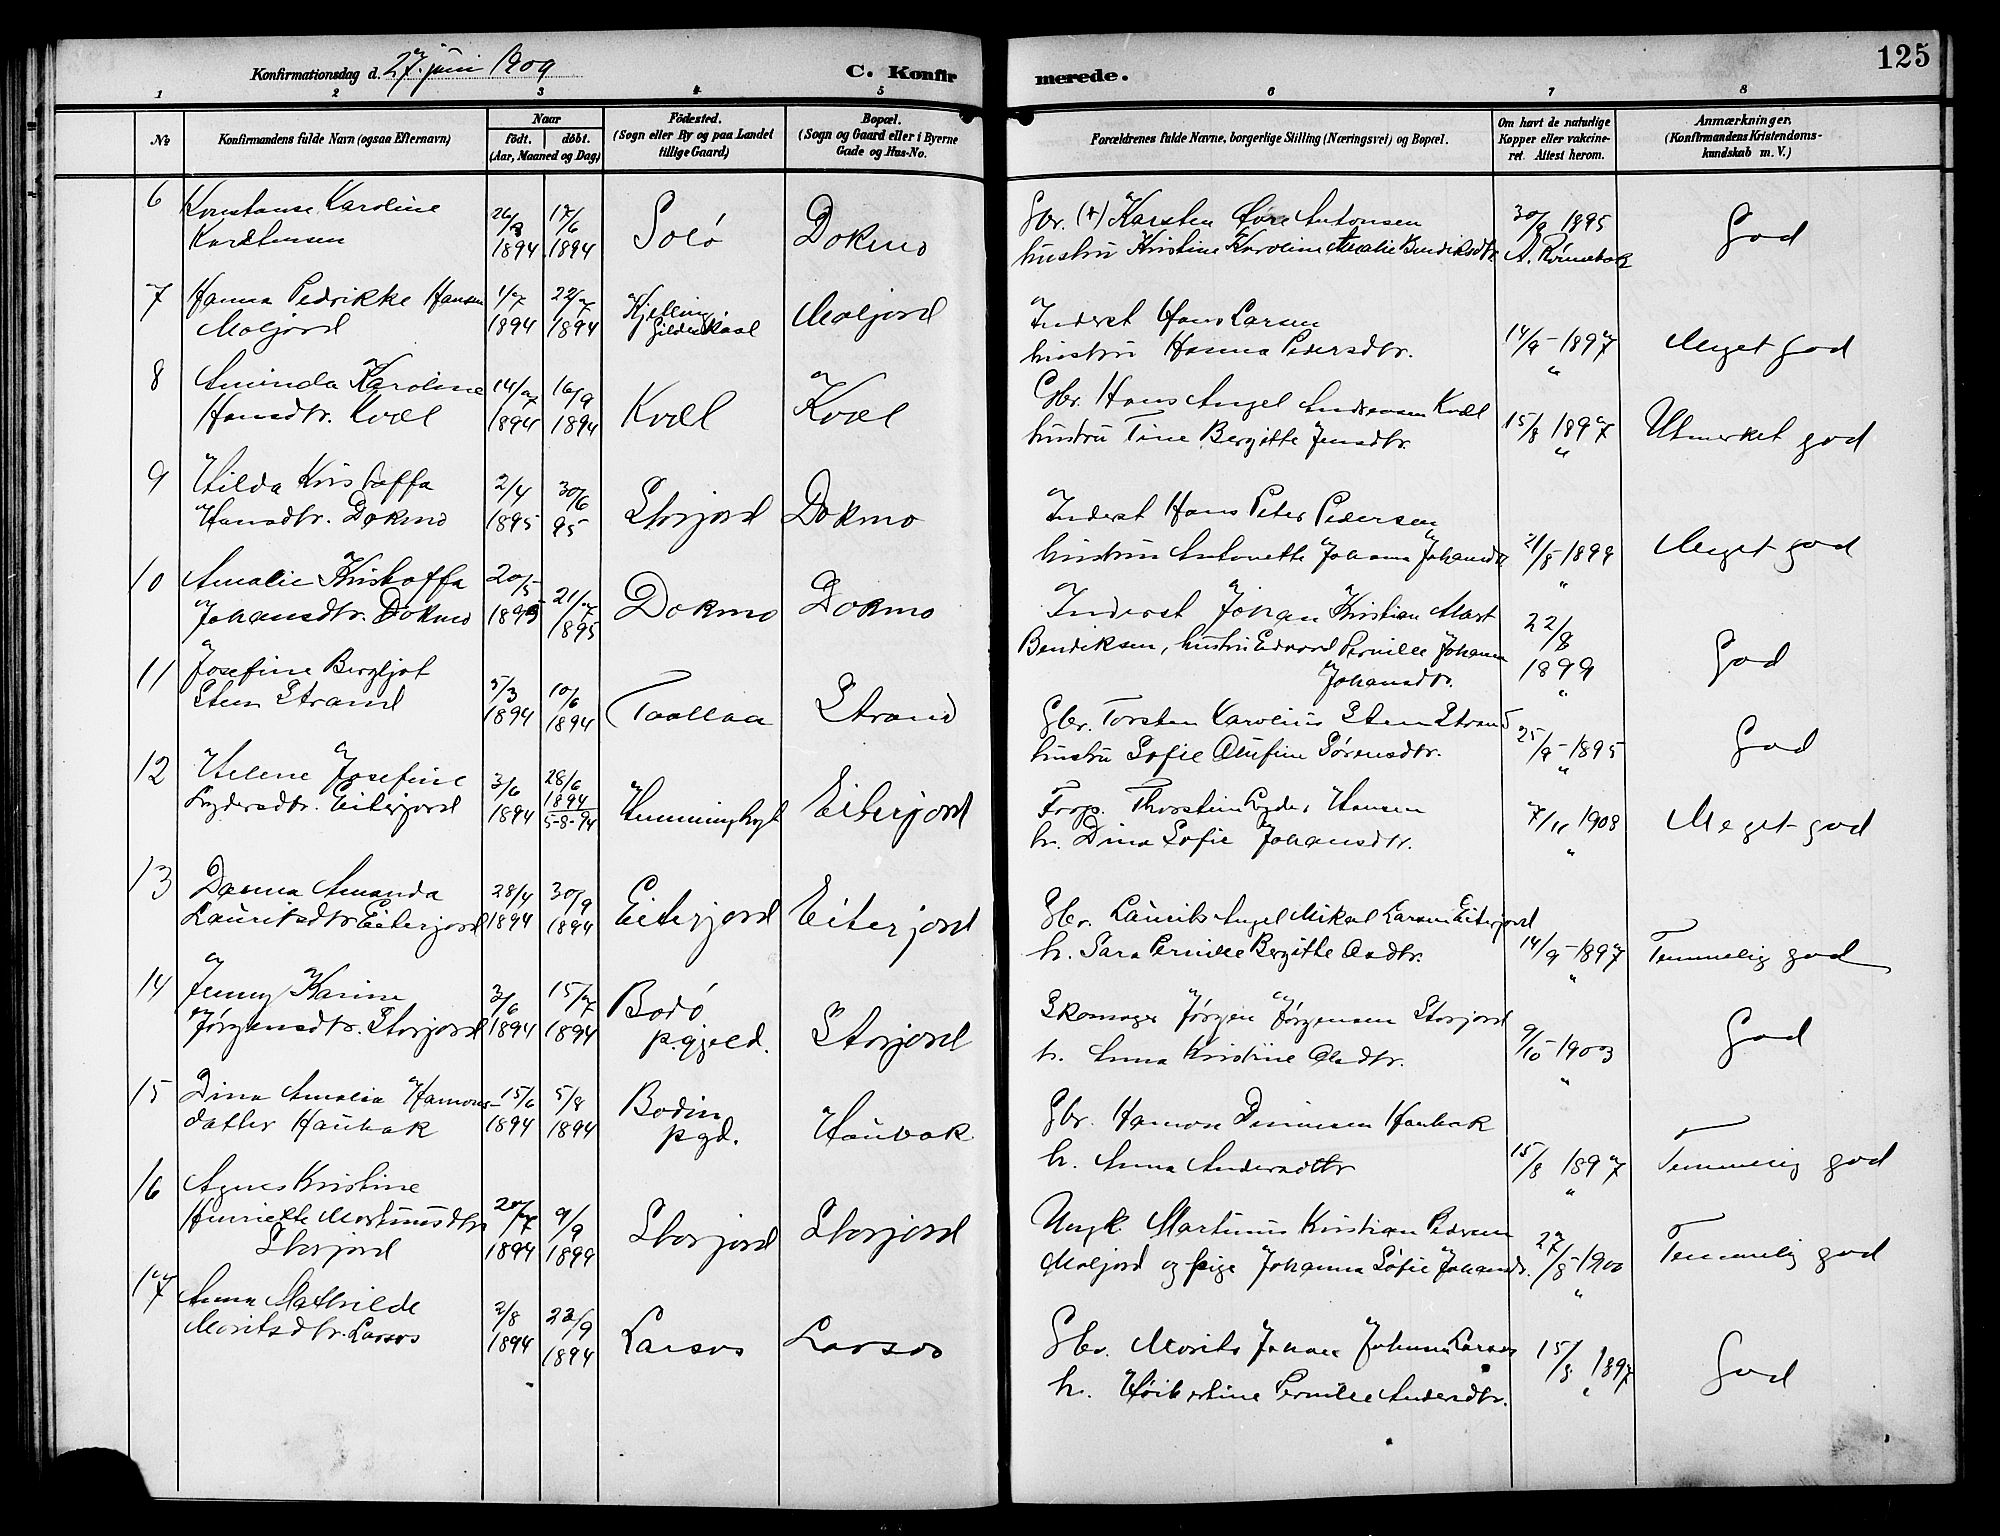 125
Konfirmationsdag d. 27. juni 1909 C. Konfirmerede.
1 2 3 4 5 6 7 8
No Konfirmandens fulde Navn (ogsaa Efternavn) Naar Födt. döbt. (Aar, Maaned og Dag) Födested. (Sogn eller By og paa Landet tillige Gaard) Bopæl. (Sogn og Gaard eller i Byerne Gade og Hus-No. Forældrenes fulde Navne, borgerlige Stilling (Næringsvei) og Bopæl. Om havt de naturlige Kopper eller vakcineret. Attest herom. Anmærkninger. (Konfirmandens Kristendomskundskab m. V.)
6 Konstanse Karoline 26/3 17/6 Solö Dokmo Gbr. (+) Karsten Antonsen 30/9 1895 God
Karstensen 1894 1894 hustru Kristine Karoline Amalie Bendiksdtr.
7 Hanna Pedrikke Hansen 1/7 22/7 Kjelling, Moljord Inderst Hans Larsen 14/9 - 1897 Meget god
Moljord 1894 1894 Gildeskaal hustru Hanna Pedersdtr. "
8 Aminda Karoline 14/7 16/9 Kvæl Kvæl Gbr. Hans Angel Andreasen Kvæl 15/8 1897 Utmerket god
Hansdtr. Kvæl 1894 1894 hustru Tine Bergitte Jensdtr. "
9 Hilda Kristoffa 2/4 30/6 Storjord Dokmo Inderst Hans Peter Pedersen 21/8 - 1899 Meget god
Hansdtr. Dokmo 1895 95 hustru Antonette Johanna Johansdtr "
10 Amalie Kristoffa 20/5 21/7 Dokmo Dokmo Inderst Johan Kristian Mart 22/8 God
Johansdtr. Dokmo 1895 1895 Bendiksen, hustru Edvard Pernille Johanna 1899
Johansdtr. "
11 Josefine Bergljot 5/3 10/6 Taallaa Strand Gbr. Torsten Karolius Sten Strand 25/9 - 1895 God
Sten Strand 1894 1894 hustru Sofie Olufine Sørensdtr. "
12 Helene Josefine 3/6 28/6 1894 Eiterjord Thorstein Lyder Hansen 7/11 1908 Meget god
Lydersdtr. Eiterjord 1894 5-8-94 h. Dina Sofie Johansdtr. "
13 Danna Amanda 28/4 30/9 Eiterjord Eiterjord Gbr. Laurits Angel Mikal Larsen Eiterjord 14/9 - 1897 Temmelig god
Lauritsdtr. Eiterjord 1894 1894 h. Sara Pernille Bergitte Olsdtr. "
14 Jenny Karine 3/6 15/7 Bodö Storjord Skomager Jörgen Jörgensen Storjord 9/10 - 1903 God
Jörgensdtr. Storjord 1894 1894 p.gjeld. h. Anna Kristine Olsdtr. "
15 Dina Amalia Hamons- 15/6 5/8 Bodin Haubak Gbr. Hamon Haubak 15/8 1897 Temmelig god
datter Haubak 1894 1894 pgd. h. Anna Andersdtr "
16 Agnes Kristine 20/7 9/9 Storjord Storjord Ungk. Martinus Kristian Pedersen 27/8 - 1900 Temmelig god
Henriette Martinusdtr 1894 1894 Moljord og pige Johanna Sofie Johansdtr. "
Storjord
17 Anna Mathilde 2/8 23/9 Larsos Larsos Gbr. Morits Johan Johnsen Larsos 15/8 1897 God
Moritsdtr. Larsos 1894 1894 h. Pernille Andersdtr. "